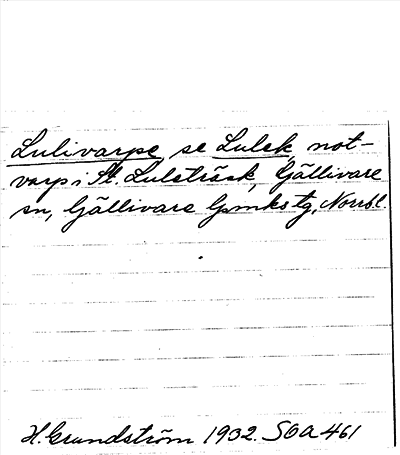 Lulivarpe se Lulek, not-
varp i St. Luleträsk, Gällivare
sn, Gällivare Lpmks tg, Norrb.l.
H. Grundström 1932. SOA 461